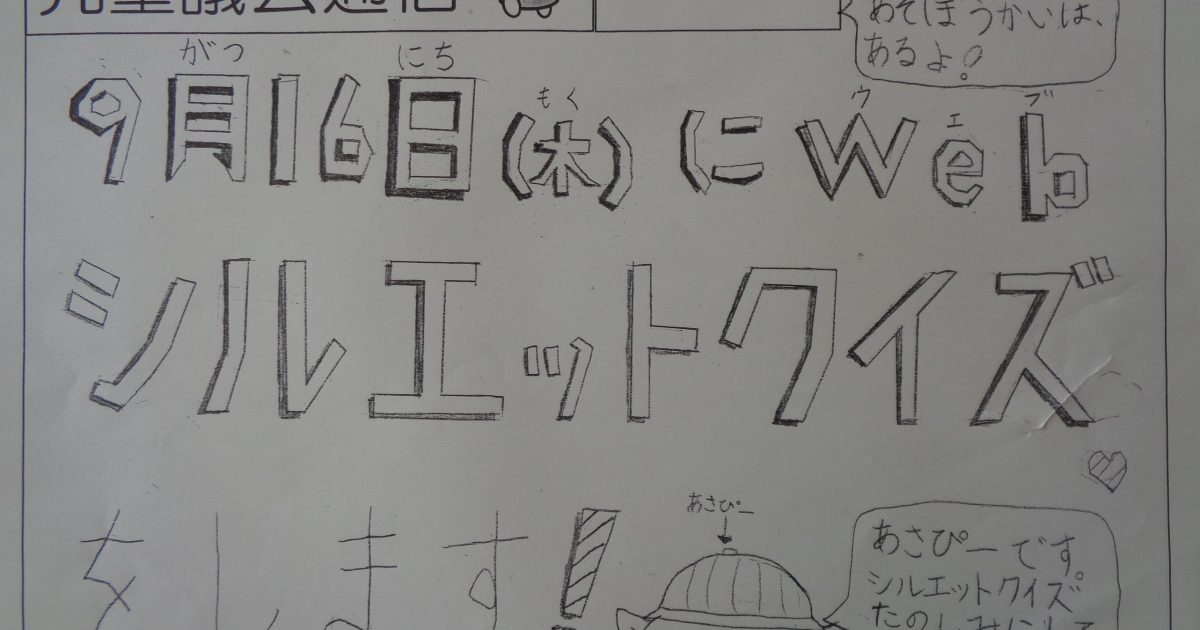 児童議会通信
あそぼうかいは、
あるよ!
がつ にち
9月16日(木)にWeb
もく ウェブ
シルエットクイズ
をします!
あさぴー
あさぴーです。
シルエットクイズ
たのしみにして